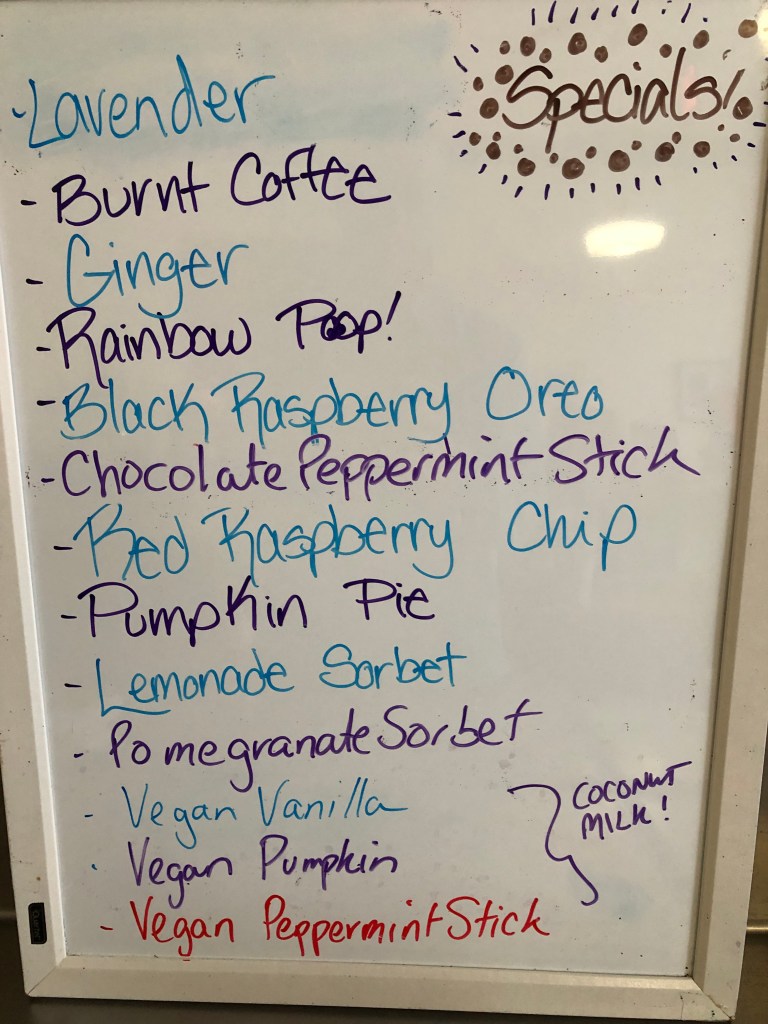 Specials!
- Lavender
- Burnt Coffee
- Ginger
- Rainbow Poop!
- Black Raspberry Oreo
- Chocolate Peppermint Stick
- Red Raspberry Chip
- Pumpkin Pie
- Lemonade Sorbet
- Pomegranate Sorbet
- Vegan Vanilla
- Vegan Pumpkin
- Vegan Peppermint Stick
COCONUT
MILK!
Quartet